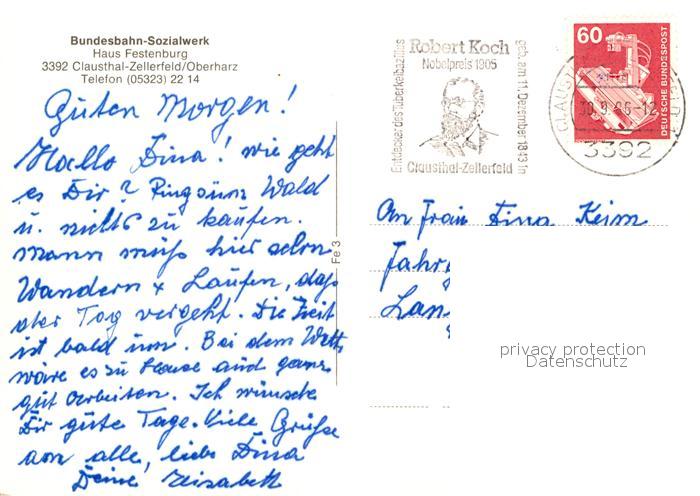 Bundesbahn-Sozialwerk
Haus Festenburg
3392 Clausthal-Zellerfeld/Oberharz
Telefon (05323) 22 14
Guten Morgen!
Hallo Dina! wie geht
es Dir? Ringsum Wald
u. nichts zu kaufen.
Mann muß hier schon
Wandern + Laufen, daß
der Tag vergeht. Die Zeit
ist bald um. Bei dem Wett.
wäre es zu Hause auch ganz
gut arbeiten. Ich wünsche
Dir gute Tage. Viele Grüße
an alle, liebe Dina
Deine Elisabeth
Fe 3
Entdecker des Tuberkelbazillus
Robert Koch
Nobelpreis 1905
geb. am 11. Dezember 1843 in
Clausthal-Zellerfeld
60
DEUTSCHE BUNDESPOST
CLAUST
3392
An Frau Dina Keim
Jahn
Lan
privacy protection
Datenschutz